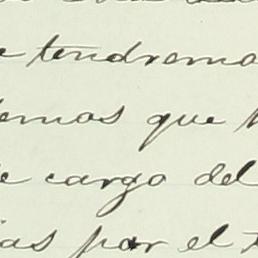 e tendremo
emos que
e cargo del
ias por el t